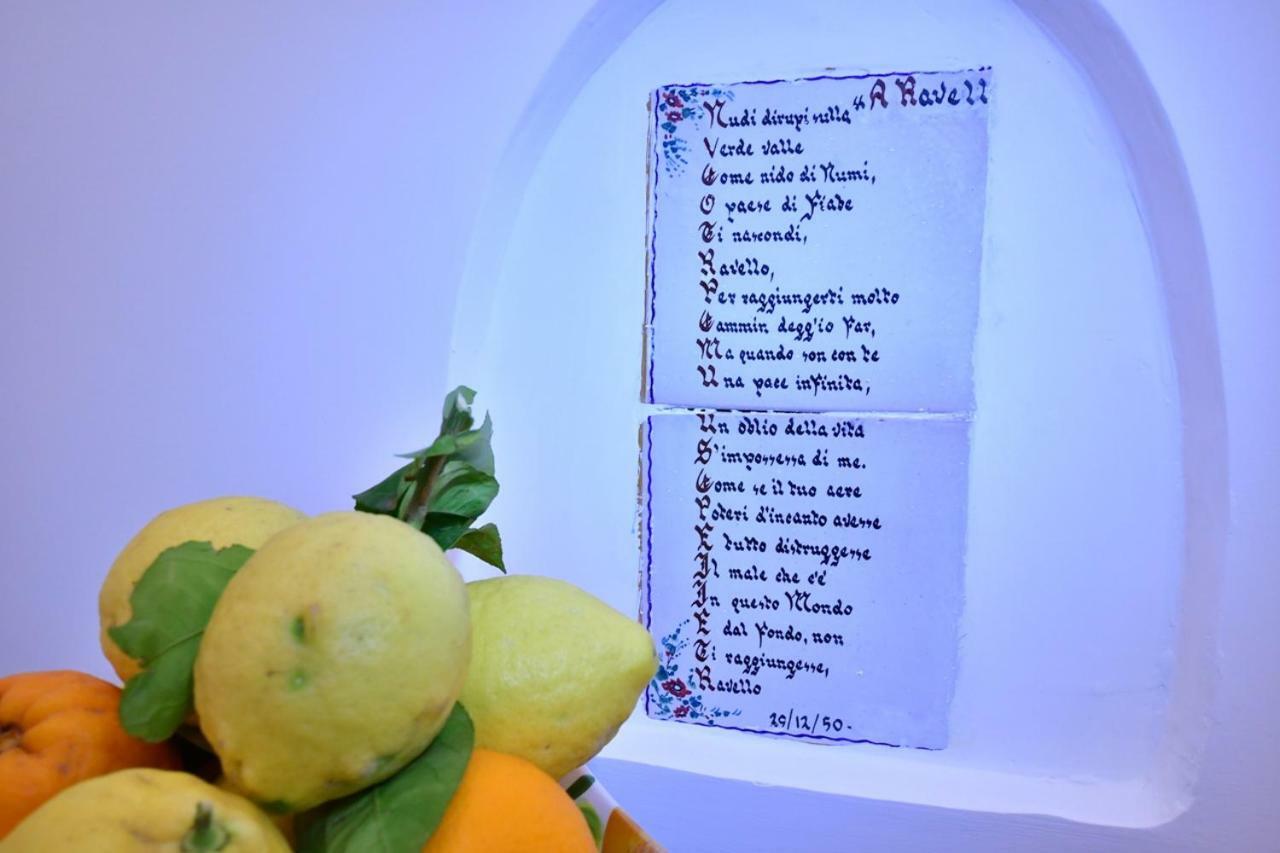 "A Ravell
Nudi dirupi sulla
Verde valle
Come nido di Numi,
O paese di Fiabe
Ti nascondi,
Ravello,
Per raggiungerti molto
Cammin degg'io far,
Ma quando son con te
Una pace infinita,
Un oblio della vita
S'impossessa di me.
Come se il tuo aere
Poteri d'incanto avesse
E tutto distruggesse
Il male che c'é
In questo Mondo
E dal fondo, non
Ti raggiungesse,
Ravello
29/12/50-